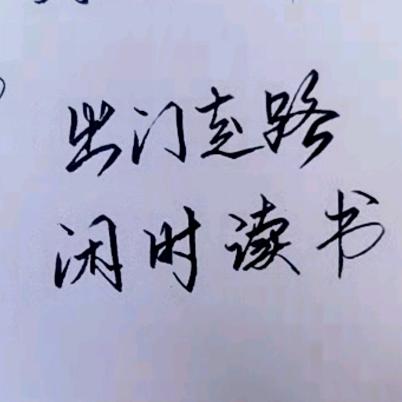 出门走路
闲时读书